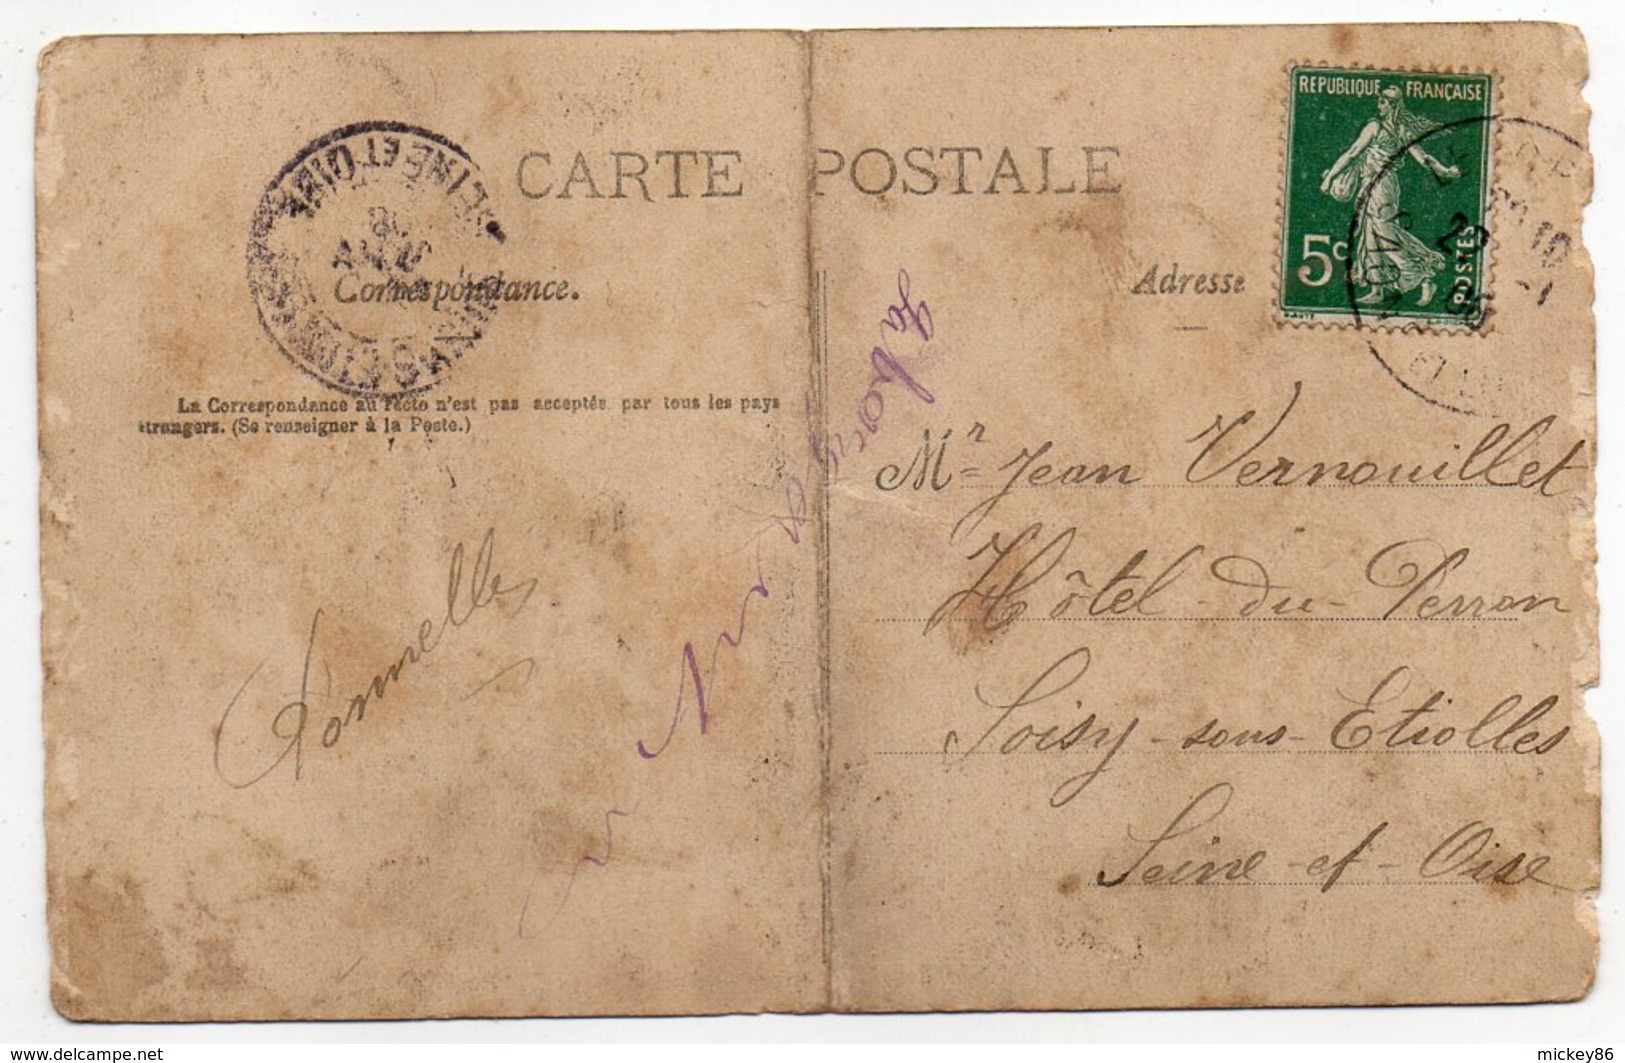 CARTE POSTALE
REPUBLIQUE FRANÇAISE
5c
POSTES
Correspondance.
Adresse
SEINE ET OISE
08
La Correspondance au recto n'est pas acceptée par tous les pays
étrangers. (Se renseigner à la Poste.)
Mr Jean Vernouillet
Hôtel-du-Perron
Soisy-sous-Etiolles
Seine-et-Oise
mickey86